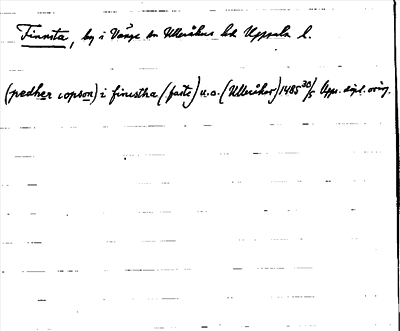 Finnsta, by i Vänge sn Ulleråkers hd Uppsala l.
(pedher iopson) i finestha (faste) u.a. (Ulleråker) 1485 30/5 Upps. dipl. orig.